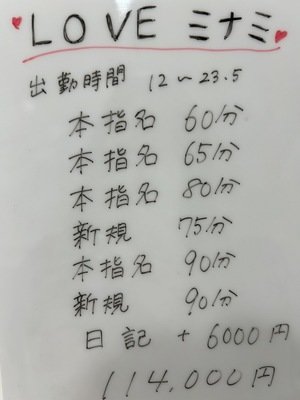 LOVE ミナミ
出勤時間 12〜23.5
本指名 60分
本指名 65分
本指名 80分
新規 75分
本指名 90分
新規 90分
日記 + 6000円
114,000円